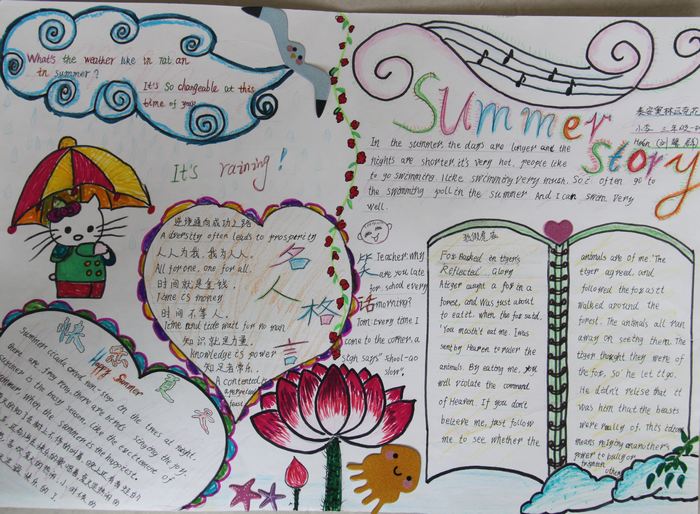 What's the weather like in
in summer?
It's so changeable at this
time of year
It's raining!
逆境通向成功之路
A diversity often leads to prosperity
人人为我,我为人人.
All for one, one for all.
时间就是金钱.
Time is money
时间不等人.
Time and tide wait for no man
知识就是力量.
Knowledge is power
知足者常乐.
A contented is a perpetual
feast
名人格言
快乐夏天
Happy Summer
Summer cicada cried non-stop on the trees at night
there are frog from there are birds singing the joy.
summer is the busy season, like the excitement of
summer, when the summer is the happiest.
Summer story
小学
In the summer, the days are longer and the
nights are shorter. it's very hot. people like
to go swimming. I like swimming very much. So I often go to
the swimming pool in the summer And I can swim very
well.
笑话
Teacher: my
are you late
for school every
morning?
Tom: Every time I
come to the corner, a
sign says "School-Go
slow".
狐假虎威
Fox Basked in tiger's
Reflected Glory
A tiger caught a fox in a
forest, and was just about
to eat it, when the fox said,
"You mustn't eat me. I was
sent by Heaven to ruler the
animals. By eating me, you
will violate the command
of Heaven. If you don't
believe me, just follow
me to see whether the
animals are of me." The
tiger agreed, and
followed the fox as it
walked around the
forest. The animals all ran
away on seeing them. The
tiger thought they were of
the fox, so he let it go.
He didn't relise that it
was him that the beasts
were really of. this idiom
means relying on another's
power to bully or
others